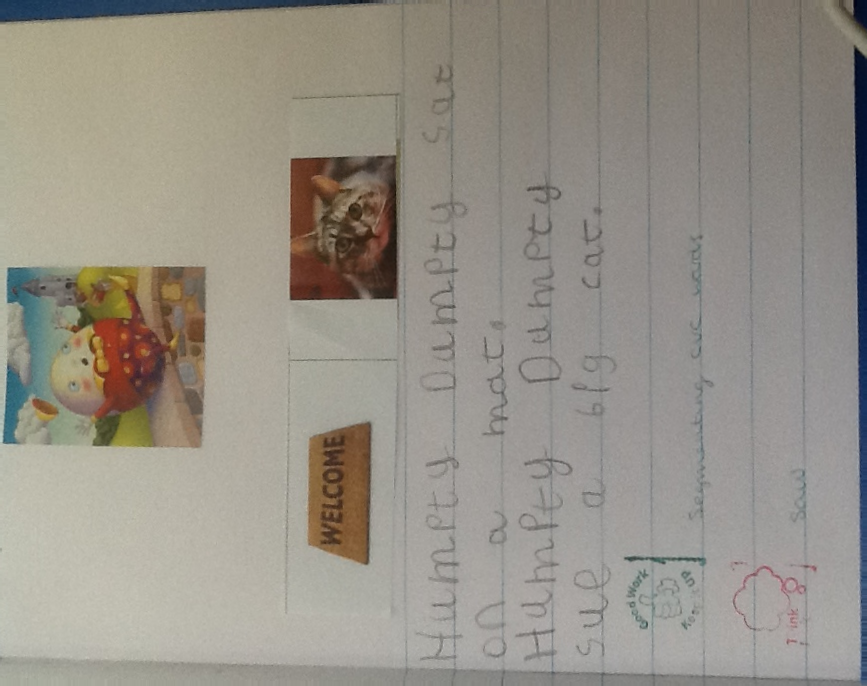 WELCOME
Humpty Dumpty sat
on a mat.
Humpty Dumpty
sue a big cat.
Good Work
segmenting cvc words
Think
saw